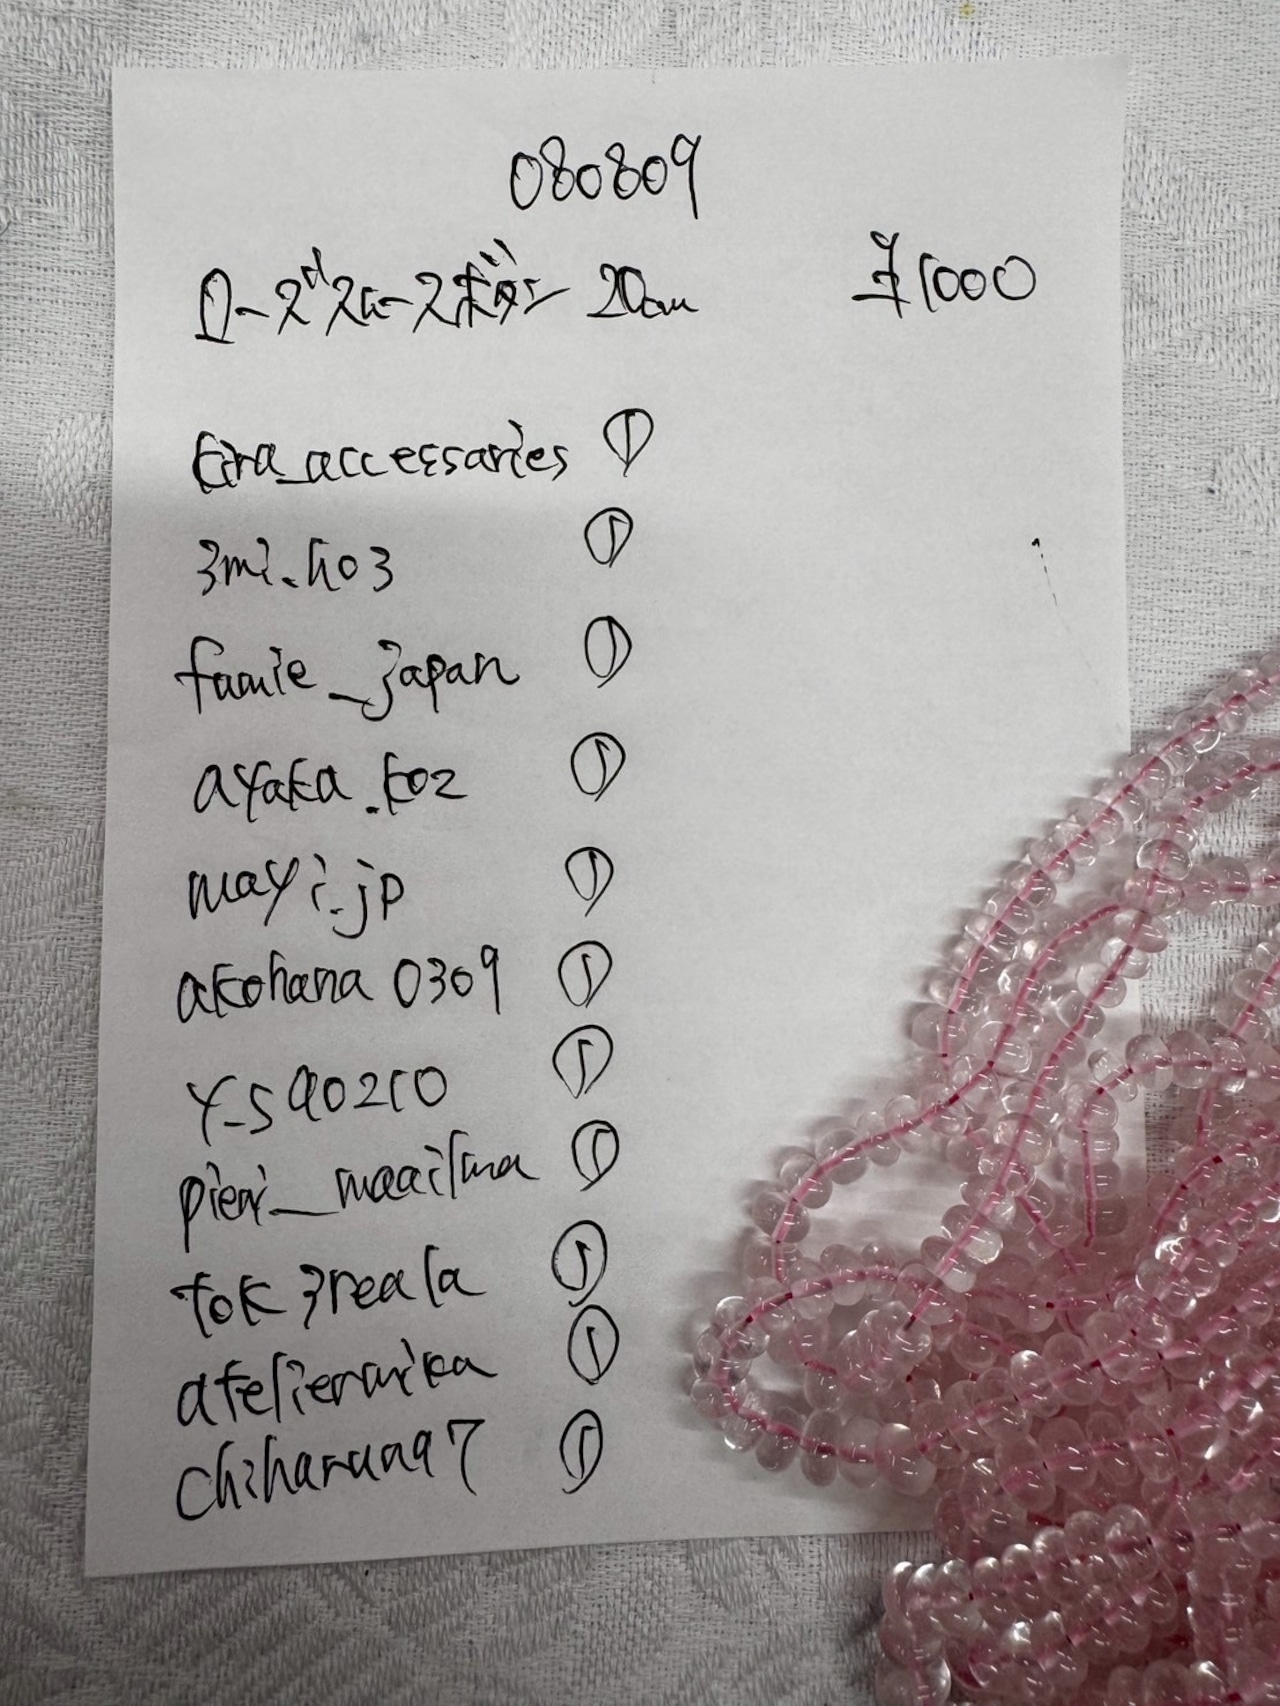 080809
ローズスムースボタン 20cm ¥1000
kira_accessaries ①
3mi.ho3 ①
famie_japan ①
ayaka.koz ①
mayi.jp ①
akohana0309 ①
y_s90210 ①
pieni_maailma ①
tok3reala ①
atelierarika ①
chiharuna97 ①